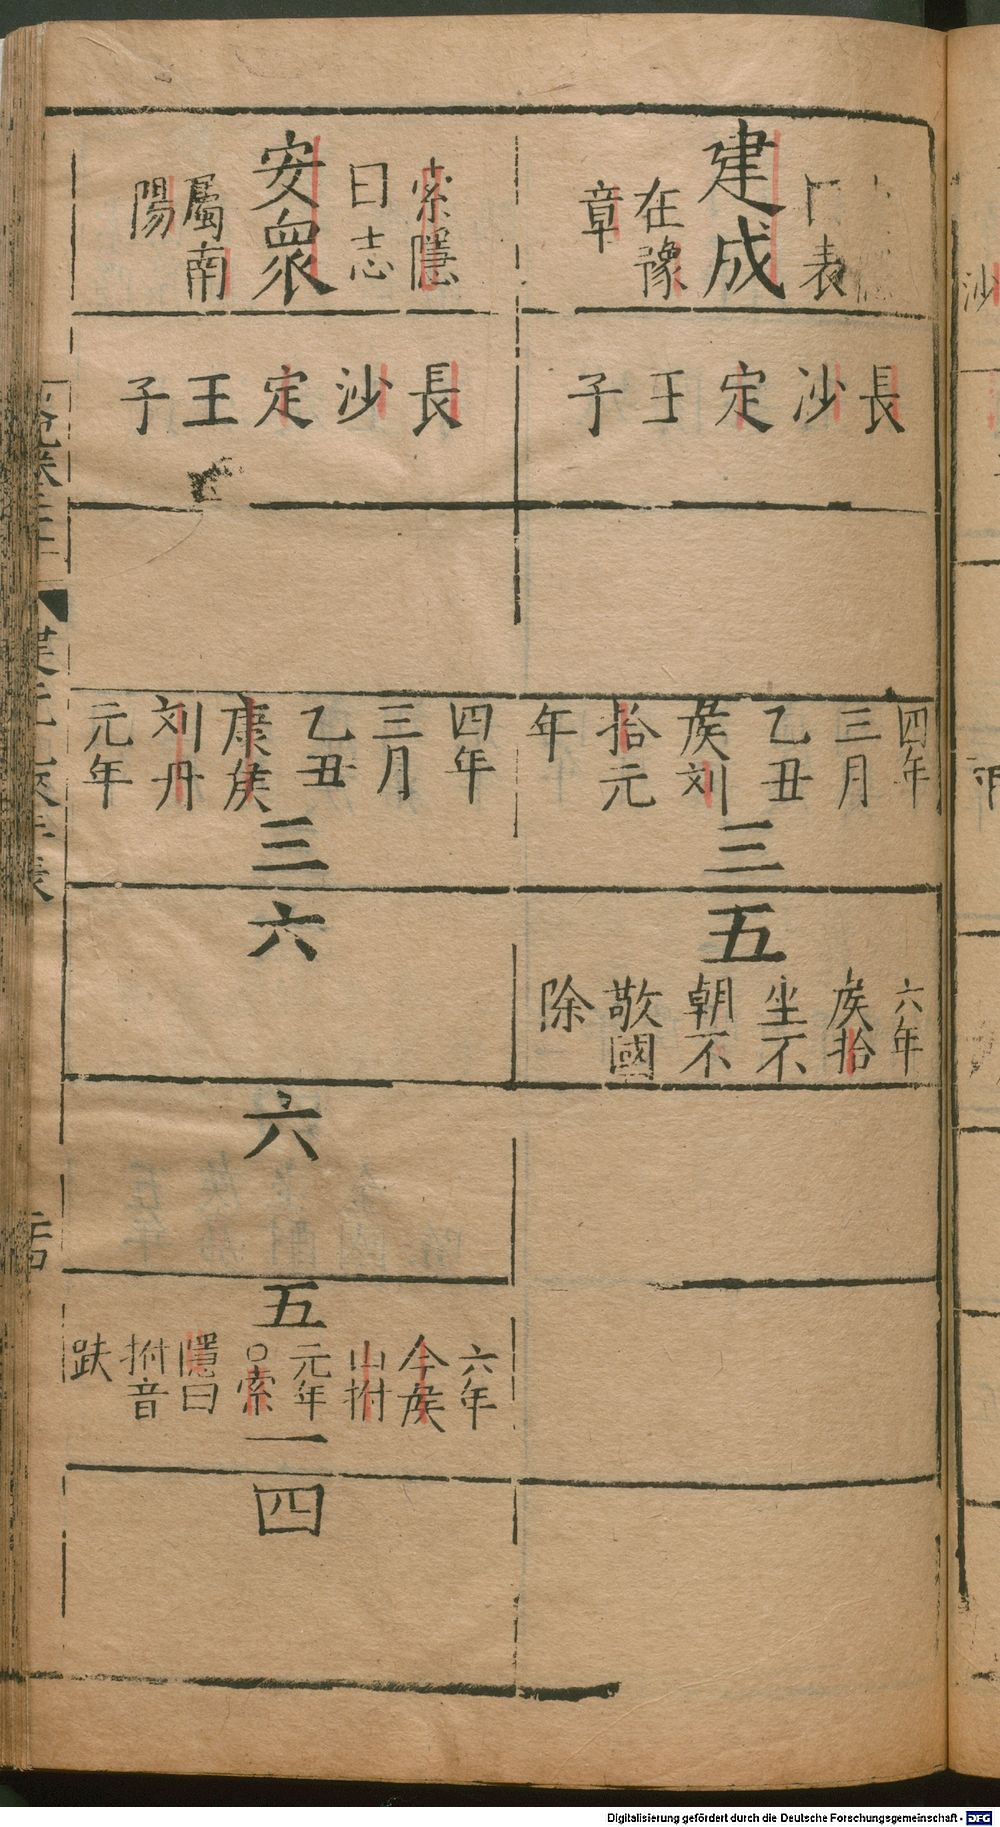 建成
曰表
在豫
章
長沙定王子
四年
三月
乙丑
矦刘
拾元
年
三
五
六年
矦拾
坐不
朝不
敬國
除
安衆
索隱
曰志
屬南
陽
長沙定王子
四年
三月
乙丑
康矦
刘丹
元年
三
六
六
五
六年
今矦
山拊
元年
○索
隱曰
拊音
趺
一
四
沙
Digitalisierung gefördert durch die Deutsche Forschungsgemeinschaft - DFG